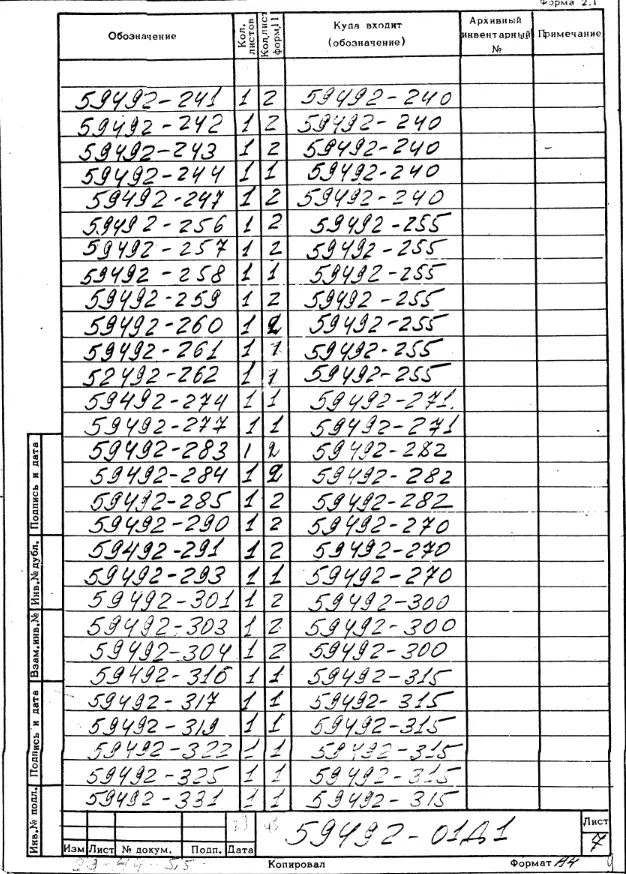 Форма 2.1
Обозначение Кол. листов Кол.лист форм.11 Куда входит (обозначение) Архивный инвентарный № Примечание
59492-241 1 2 59492-240
59492-242 1 2 59492-240
59492-243 1 2 59492-240
59492-244 1 1 59492-240
59492-247 1 2 59492-240
59492-256 1 2 59492-255
59492-257 1 2 59492-255
59492-258 1 1 59492-255
59492-259 1 2 59492-255
59492-260 1 2 59492-255
59492-261 1 1 59492-255
52492-262 1 1 59492-255
59492-274 1 1 59492-271.
59492-277 1 1 59492-271
59492-283 1 2 59492-282
59492-284 1 2 59492-282
59492-285 1 2 59492-282
59492-290 1 2 59492-270
59492-291 1 2 59492-270
59492-293 1 1 59492-270
59492-301 1 2 59492-300
59492-303 1 2 59492-300
59492-304 1 2 59492-300
59492-316 1 1 59492-315
59492-317 1 1 59492-315
59492-319 1 1 59492-315
59492-322 1 1 59492-315
59492-325 1 1 59492-315
59492-331 1 1 59492-315
Подпись и дата
Инв.№ дубл.
Взам.инв.№
Подпись и дата
Инв.№ подл.
59492-01Д1
Лист
7
Изм Лист № докум. Подп. Дата
Копировал
Формат А4